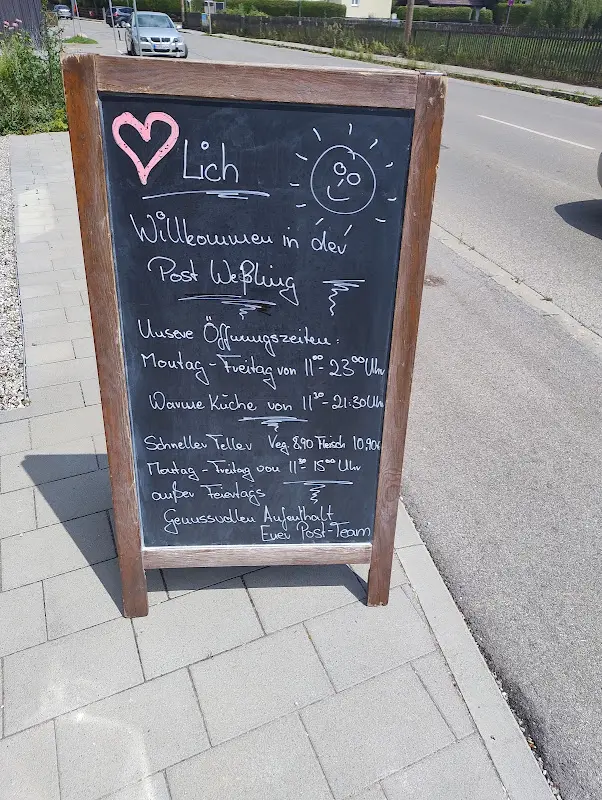 Lich
Willkommen in der
Post Weßling
Unsere Öffnungszeiten:
Montag - Freitag von 11⁰⁰ - 23⁰⁰ Uhr
Warme Küche von 11³⁰ - 21:30 Uhr
Schneller Teller Veg. 8,90 Fleisch 10,90€
Montag - Freitag von 11³⁰ - 15⁰⁰ Uhr
außer Feiertags
Genussvollen Aufenthalt
Euer Post-Team